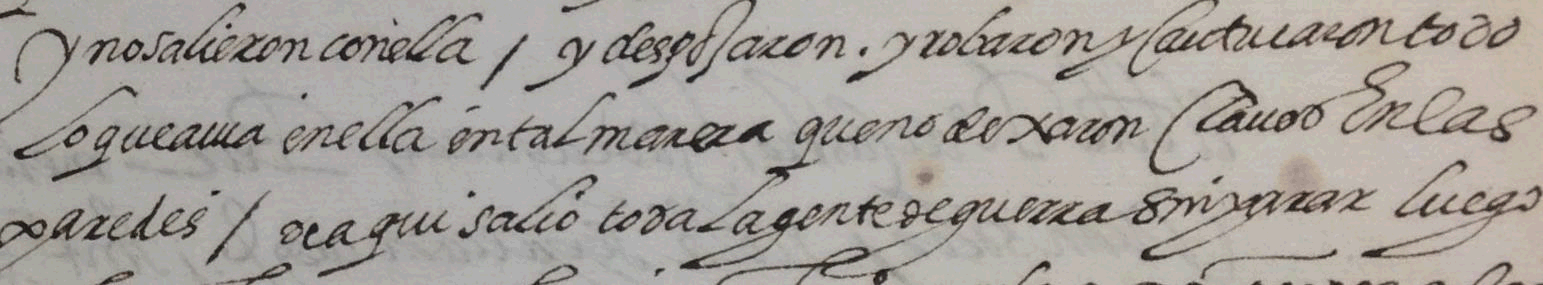 y no salieron con ella / y despojaron . y robaron y cautiuaron todo
lo que auia en ella en tal manera que no dexaron clauo En las
paredes / de aqui salio toda la gente de guerra sin parar luego